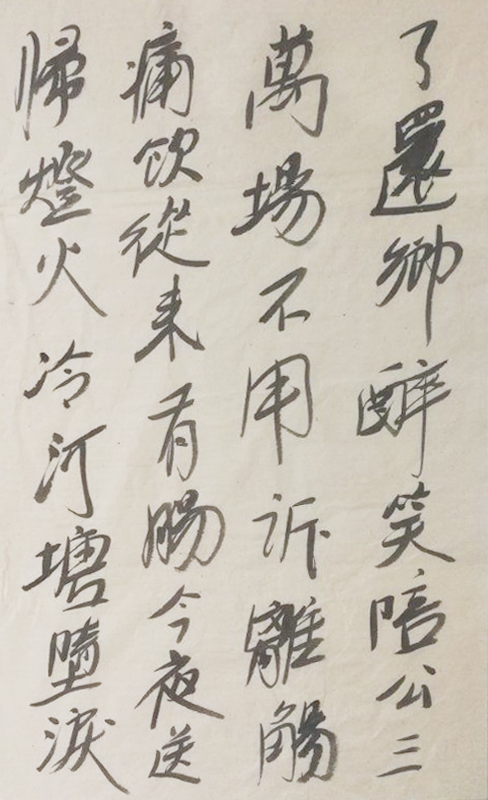 了還鄉醉笑陪公三
萬場不用訴離觴
痛飲從來有腸今夜送
歸燈火冷河塘墮淚